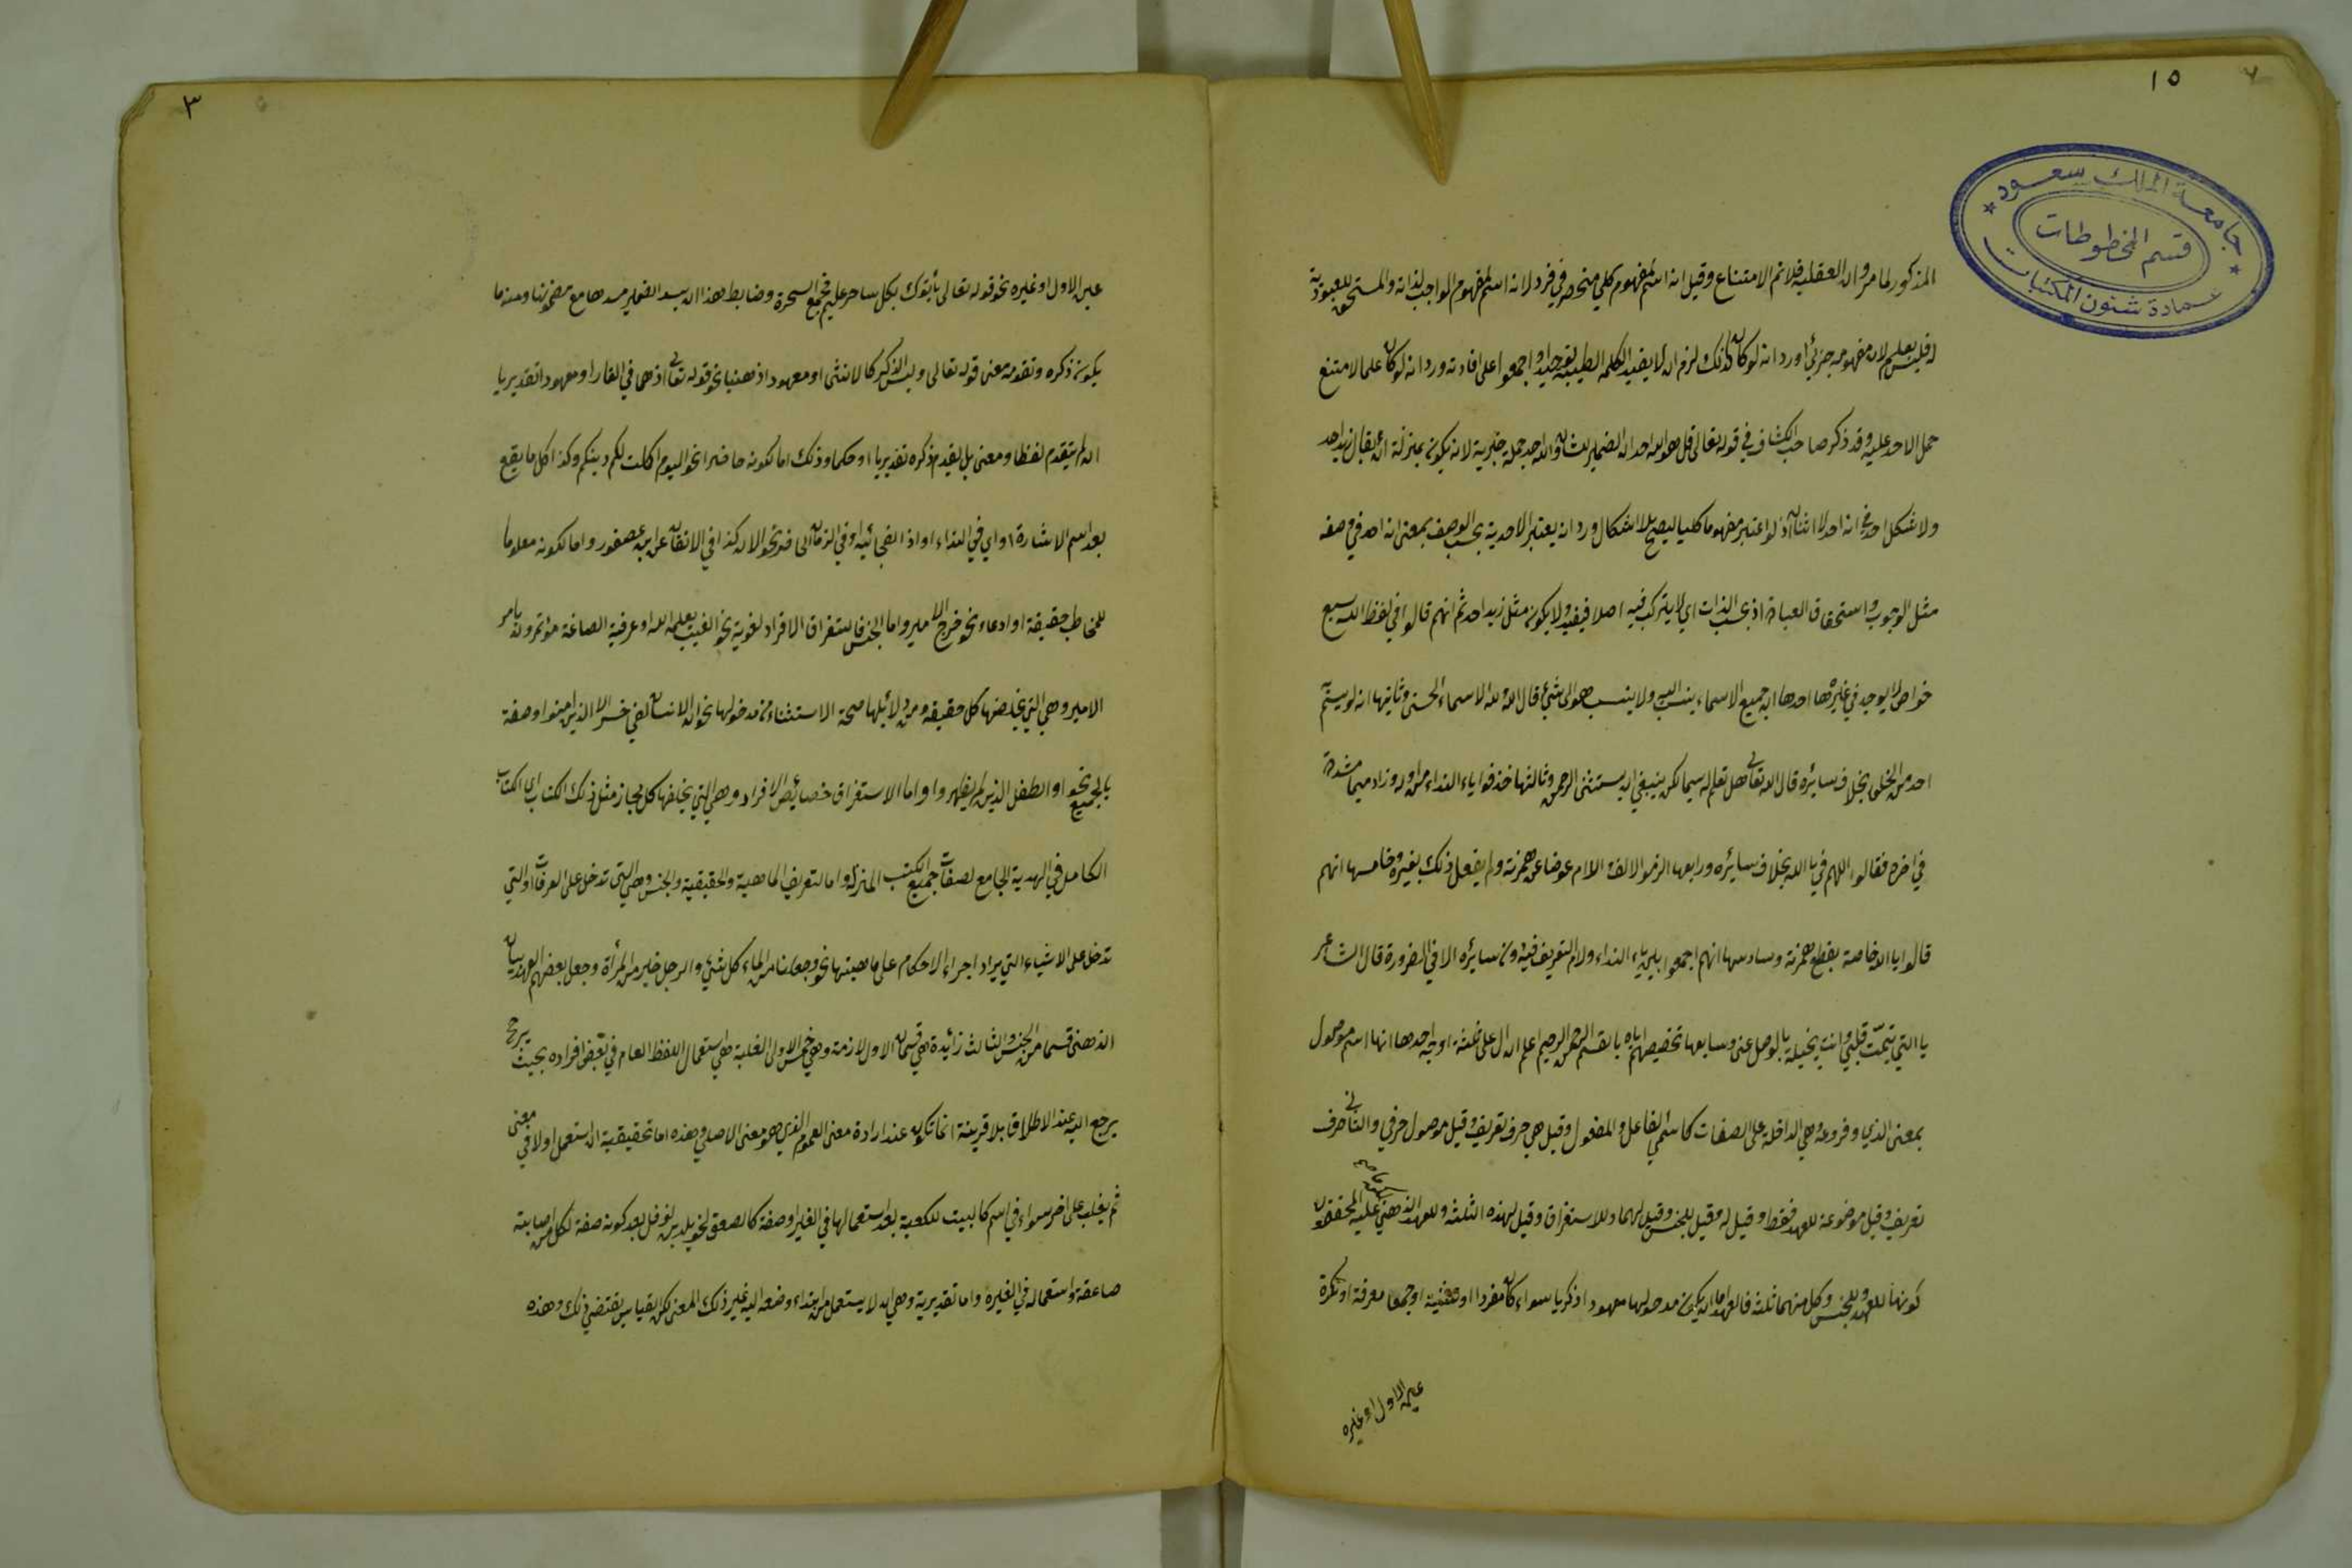 ١٥
جامعة الملك سعود
قسم المخطوطات
عمادة شئون المكتبات
المذكور لما مر وان العقلية فلا تم الامتناع وقيل انه اسم لمفهوم كلي منحصر في فرد لانه اسم لمفهوم الواجب لذاته والمستحق للعبودية
له فليس بعلم لان مفهومه جزئي اورد انه لو كان كذلك لزم ان لا يفيد الكلمة الطيبة توحيدا واجمعوا على افادته ورد انه لو كان علما لامتنع
حمل الاحد عليه وقد ذكر صاحب الكشاف في قوله تعالى قل هو الله احد ان الضمير للشان والله احد جملة خبرية لانه يكون بمنزلة ان يقال زيد احد
ولا شكل احد في انه احد لا اثنان اذ لو اعتبر مفهوما كليا ليصح بلا اشكال ورد انه يعتبر الاحدية بحسب الوصف بمعنى انه احد في وصفه
مثل الوجوب واستحقاق العبادة اذ بحسب الذات اي لا يتركب فيه اصلا فيفيد ولا يكون مثل زيد احد ثم انهم قالوا في لفظ الله سبع
خواص لا يوجد في غيره احدها ان جميع الاسماء ينسب اليه ولا ينسب هو الى شئ قال الله ولله الاسماء الحسنى وثانيها انه لو يسم
احد من الخلق بخلاف سائره قال الله تعالى هل تعلم له سميا لكن ينبغي ان يستثنى الرحمن وثالثها حذفوا ياء النداء من اوله وزاد ميما مشددة
في اخره فقالوا اللهم في يا الله بخلاف سائره ورابعها الزموا الالف واللام عوضا عن همزته ولم يفعل ذلك بغيره وخامسها انهم
قالوا يا الله خاصة بقطع همزته وسادسها انهم اجمعوا بين ياء النداء ولام التعريف فيه دون سائره الا في الضرورة قال الشاعر
يا التي تيمت قلبي وانت بخيلة بالوصل عني وسابعها تخصيصهم اياه بالقسم الرحمن الرحيم اعلم ان ال على ثلثة اوجه احدها انها اسم موصول
بمعنى الذي وفروعه وهي الداخلة على الصفات كاسمي الفاعل والمفعول وقيل هي حرف تعريف وقيل موصول حرفي والثاني حرف
تعريف وقيل موضوعة للعهد فقط وقيل له وقيل للجنس وقيل لهما وللاستغراق وقيل لهذه الثلثة وللعهد الذهني عليه المحققون
كونها للعهد وللجنس وكل منهما ثلثة فالعهد اما ان يكون مدخولها معهودا ذكريا سواء كان مفردا او جمعا معرفة او نكرة
عين الاول او غيره
٣
عين الاول او غيره نحو قوله تعالى يأتوك بكل ساحر عليم فجمع السحرة وضابط هذا ان يسد الضمير مسدها مع مصحوبها ومنه ما
يكون ذكره وتقدمه معنى قوله تعالى وليس الذكر كالانثى او معهودا ذهنيا نحو قوله تعالى اذ هما في الغار او معهودا تقديريا
ان لم يتقدم لفظا ومعنى بل بقيد ذكره تقديريا او حكما وذلك اما لكونه حاضرا نحو اليوم اكملت لكم دينكم وكذا كل ما يقع
بعد اسم الاشارة او اي في النداء او اذا الفجائية او في الزمان الحاضر نحو الان كذا في الاتقان عن ابن عصفور واما لكونه معلوما
للمخاطب حقيقة او ادعاء نحو خرج الامير واما الجنس فالاستغراق الافراد لغوية نحو الغيب يعلمه الله او عرفية الصاغة مؤتمرون بامر
الامير وهي التي يخلفها كل حقيقة ومن دلائلها صحة الاستثناء من مدخولها نحو ان الانسان لفي خسر الا الذين امنوا وصفة
بالجمع نحو او الطفل الذين لم يظهروا واما الاستغراق خصائص الافراد وهي التي يخلفها كل مجاز مثل ذلك الكتاب اي الكتاب
الكامل في الهدية الجامع لصفات جميع الكتب المنزلة واما لتعريف الماهية والحقيقية والجنس وهي التي تدخل على العرفات او التي
تدخل على الاشياء التي يراد اجراء الاحكام على ماهيتها نحو وجعلنا من الماء كل شئ والرجل خير من المرأة وجعل بعضهم العهد بيان
الذهني قسما من الجنس والثالث زائدة وهي قسمان الاول لازمة وهي خمس الاولى الغلبة هي استعمال اللفظ العام في بعض افراده بحيث يرجح
يرجع اليه عند الاطلاق بلا قرينة انما تكون عند ارادة معنى العموم الذي هو معنى الاصلي وهذه اما تحقيقية ان استعمل اولا في معنى
ثم يغلب على اخر سواء في اسم كالبيت للكعبة بعد استعمالها في الغير او صفة كالصعق لخويلد بن نوفل بعد كونه صفة لكل من اصابته
صاعقة واستعماله في الغيره واما تقديرية وهي ان لا يستعمل من ابتداء وضعه اليه غير ذلك المعنى لكن القياس يقتضي ذلك وهذه